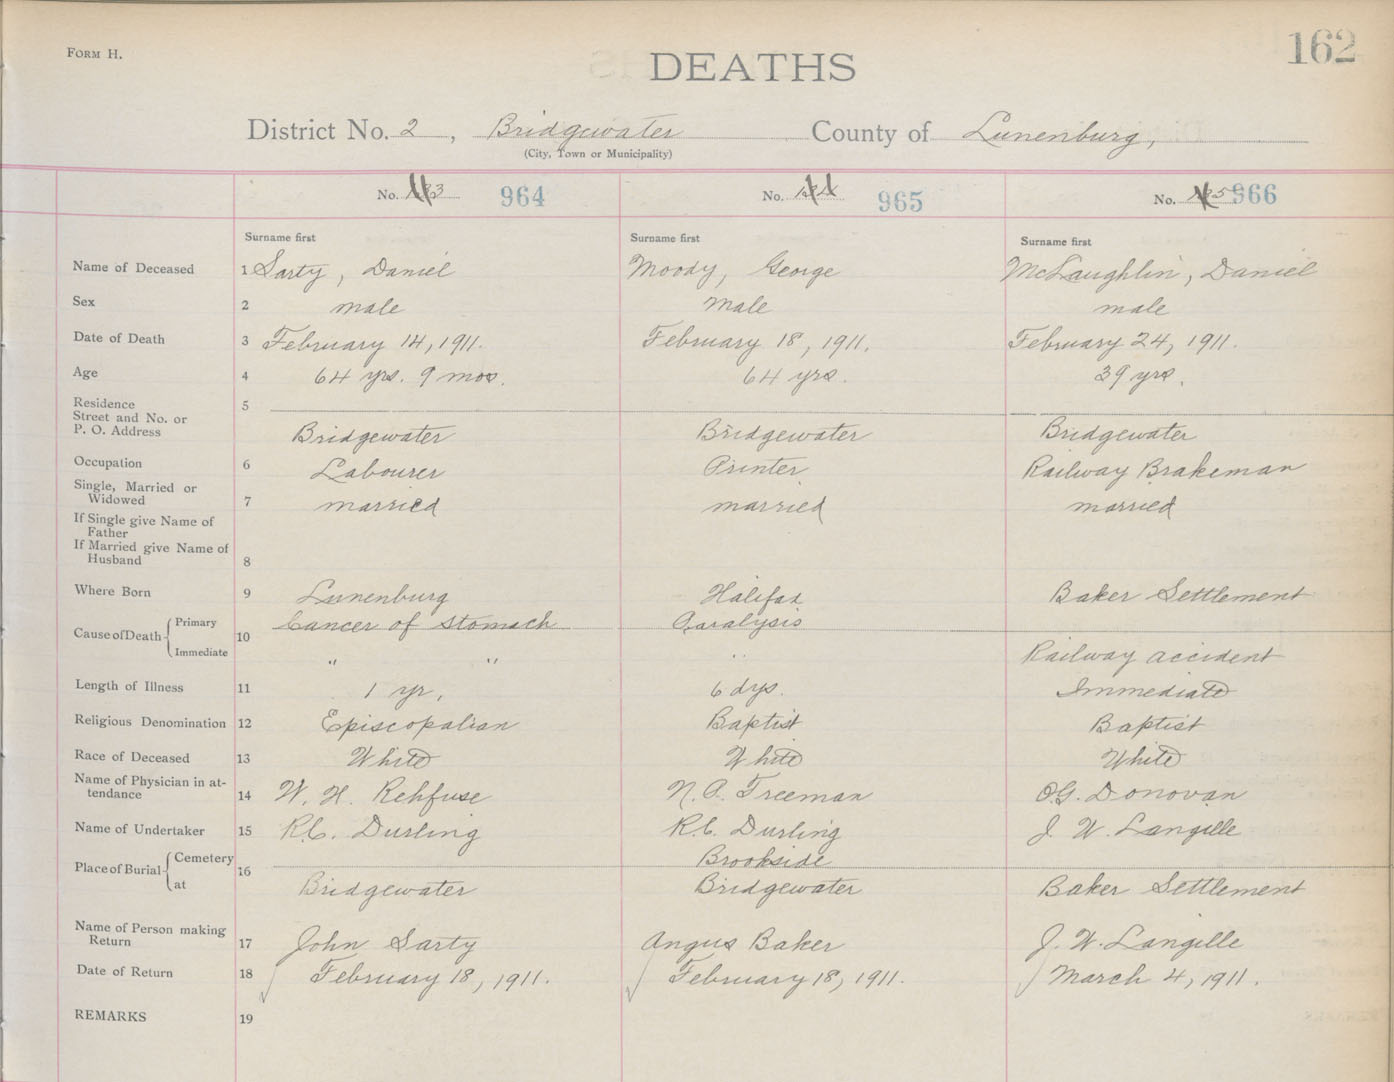 FORM H.
162
DEATHS
District No. 2, Bridgewater County of Lunenburg,
(City, Town or Municipality)
No. 964 No. 965 No. 966
Surname first Surname first Surname first
Name of Deceased 1 Sarty, Daniel Moody, George McLaughlin, Daniel
Sex 2 male male male
Date of Death 3 February 14, 1911. February 18, 1911. February 24, 1911.
Age 4 64 yrs. 9 mos. 64 yrs. 39 yrs.
Residence 5
Street and No. or
P. O. Address Bridgewater Bridgewater Bridgewater
Occupation 6 Labourer Printer Railway Brakeman
Single, Married or
Widowed 7 married married married
If Single give Name of
Father
If Married give Name of
Husband 8
Where Born 9 Lunenburg Halifax Baker Settlement
Cause of Death 10 Primary Cancer of Stomach Paralysis
Immediate " " " Railway accident
Length of Illness 11 1 yr. 6 dys. Immediate
Religious Denomination 12 Episcopalian Baptist Baptist
Race of Deceased 13 White White White
Name of Physician in at-
tendance 14 W. H. Rehfuse N. A. Freeman O.G. Donovan
Name of Undertaker 15 R.C. Durling R.C. Durling J. W. Langille
Place of Burial 16 Cemetery Brookside
at Bridgewater Bridgewater Baker Settlement
Name of Person making
Return 17 John Sarty Angus Baker J. W. Langille
Date of Return 18 February 18, 1911. February 18, 1911. March 4, 1911.
REMARKS 19